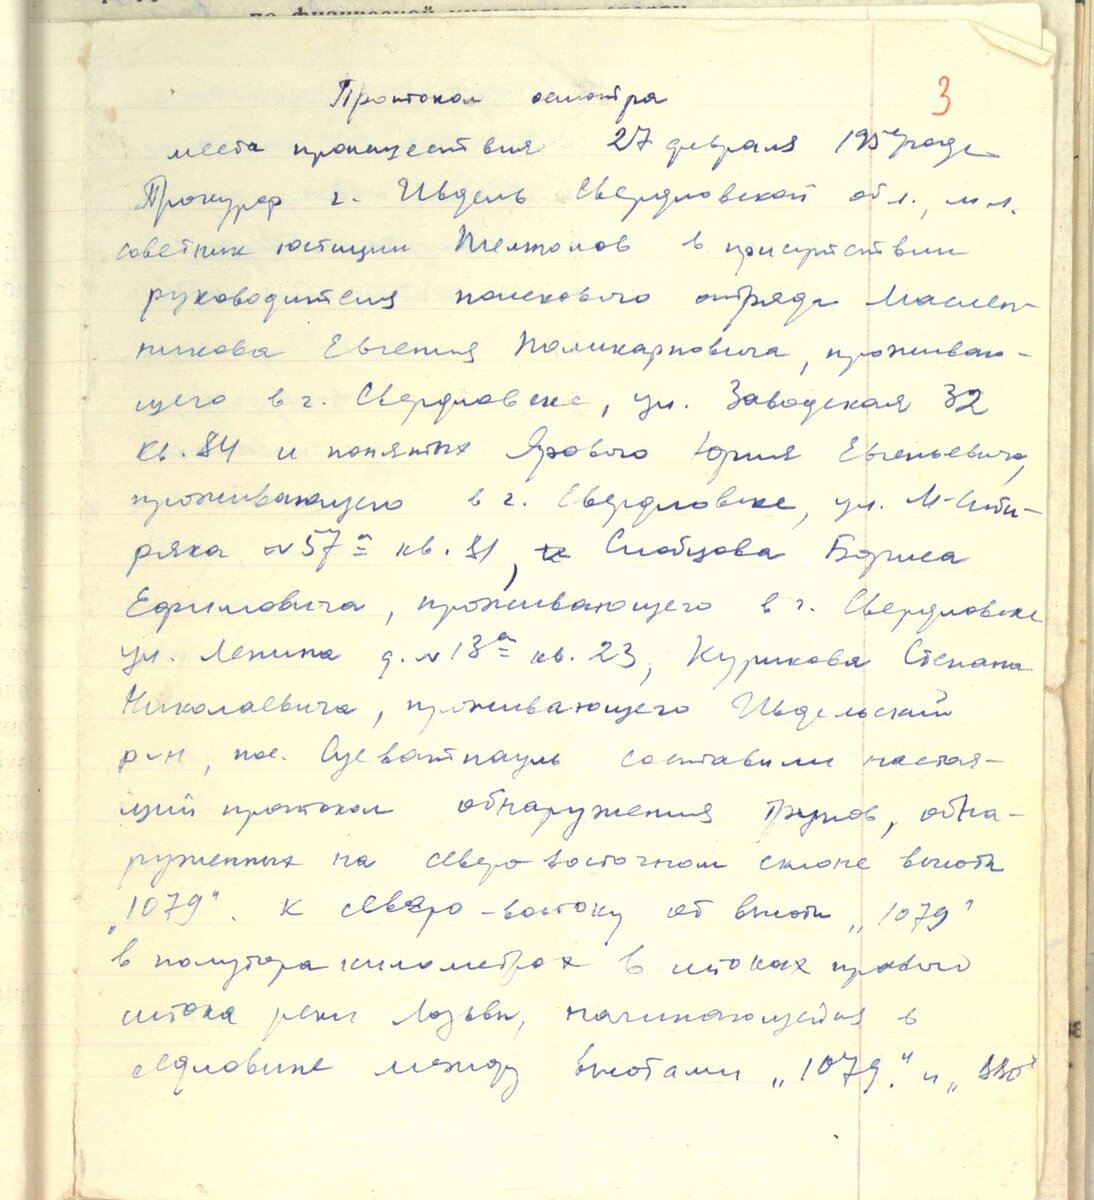 3
Протокол осмотра
места происшествия 27 февраля 1959 года
Прокурор г. Ивдель Свердловской обл., мл.
советник юстиции Темпалов в присутствии
руководителя поискового отряда Маслен-
никова Евгения Поликарповича, проживаю-
щего в г. Свердловске, ул. Заводская 32
кв. 84 и понятых Ярового Юрия Евгеньевича,
проживающего в г. Свердловске, ул. М-Сиби-
ряка № 57а кв. 81, Слобцова Бориса
Ефимовича, проживающего в г. Свердловске
ул. Ленина д. № 13а кв. 23, Курикова Степана
Николаевича, проживающего Ивдельский
р-н, пос. Суеватпауль составили настоя-
щий протокол обнаружения трупов, обна-
руженных на северо восточном склоне высоты
„1079". К северо-востоку от высоты „1079"
в полутора километрах в истоках правого
истока реки Лозьвы, начинающейся в
седловине между высотами „1079." и „880"